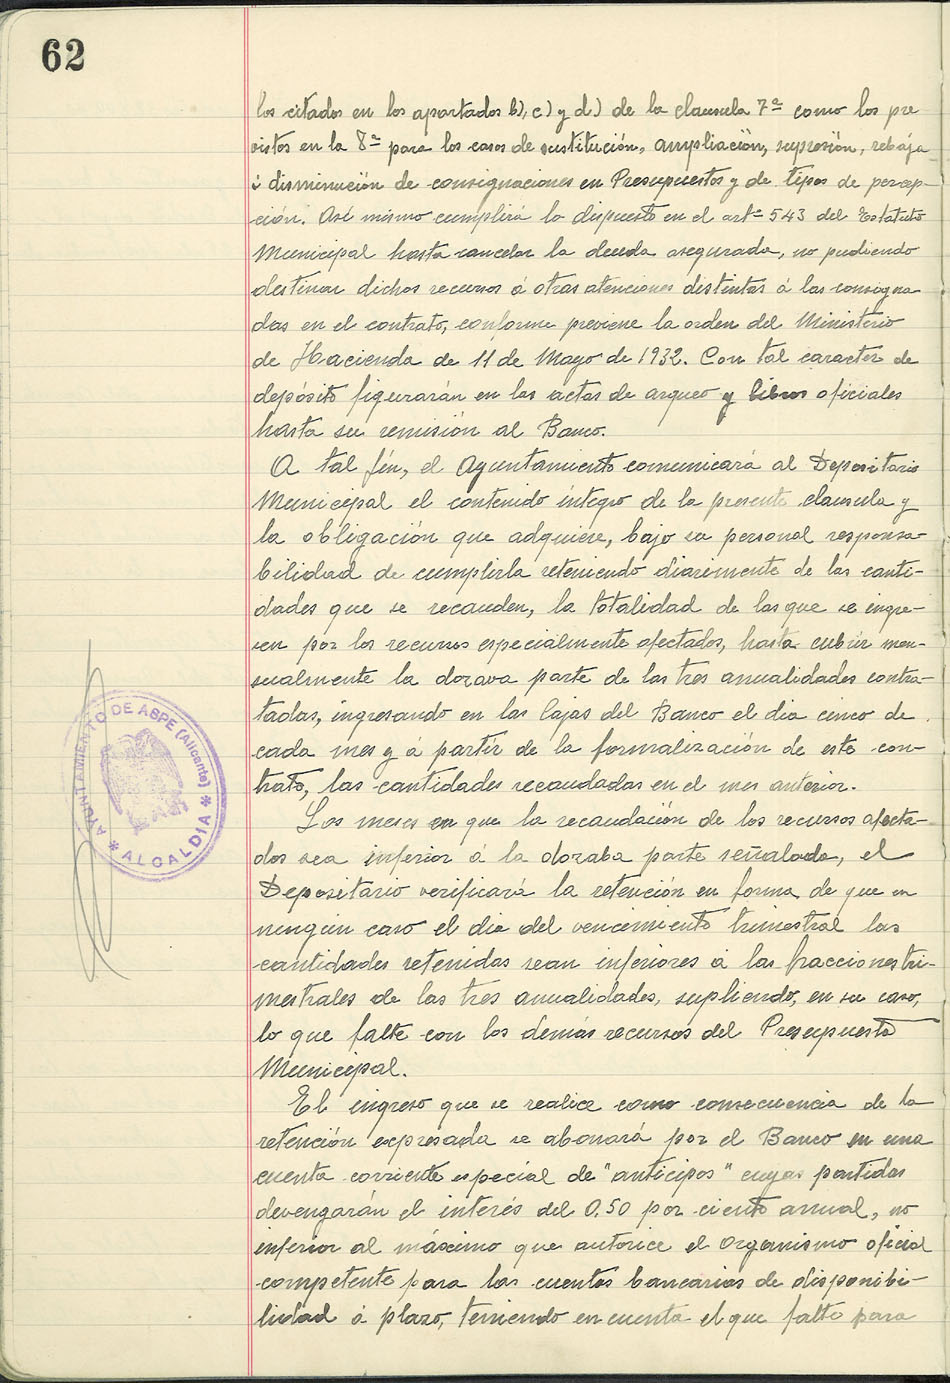 62
los citados en los apartados b), c) y d) de la clausula 7ª como los pre
vistos en la 8ª para los casos de sustitución, ampliación, supresión, rebaja
ó disminución de consignaciones en Presupuestos y de tipos de percep-
ción. Así mismo cumplirá lo dispuesto en el artº 543 del Estatuto
Municipal hasta cancelar la deuda asegurada, no pudiendo
destinar dichos recursos á otras atenciones distintas á las consigna-
das en el contrato, conforme previene la orden del Ministerio
de Hacienda de 11 de Mayo de 1932. Con tal caracter de
depósito figurarán en las actas de arqueo y libros oficiales
hasta su remisión al Banco.
A tal fín, el Ayuntamiento comunicará al Depositario
Municipal el contenido íntegro de la presente clausula y
la obligación que adquiere, bajo su personal responsa-
bilidad de cumplirla reteniendo diariamente de las canti-
dades que se recauden, la totalidad de las que se ingre-
sen por los recursos especialmente afectados, hasta cubrir men-
sualmente la dozava parte de las tres anualidades contra-
tadas, ingresando en las Cajas del Banco el dia cinco de
cada mes y á partír de la formalización de este con-
trato, las cantidades recaudadas en el mes anterior.
Los meses en que la recaudación de los recursos afecta-
dos sea inferior á la dozaba parte señalada, el
Depositario verificará la retención en forma de que en
ningún caso el dia del vencimiento trimestral las
cantidades retenidas sean inferiores á las fracciones tri-
mestrales de las tres anualidades, supliendo, en su caso,
lo que falte con los demás recursos del Presupuesto
Municipal.
El ingreso que se realice como consecuencia de la
retención expresada se abonará por el Banco en una
cuenta corriente especial de "anticipos" cuyas partidas
devengarán el interés del 0,50 por ciento annual, no
inferior al máximo que autorice el Organismo oficial
competente para las cuentas bancarias de disponibi-
lidad á plazo, teniendo en cuenta el que falte para
AYUNTAMIENTO DE ASPE (Alicante)
* ALCALDIA *